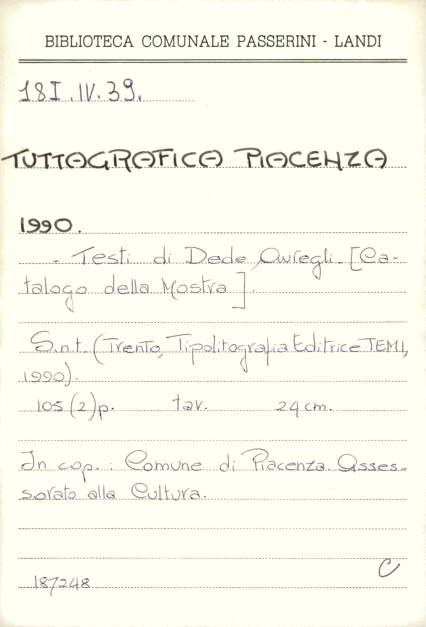 BIBLIOTECA COMUNALE PASSERINI - LANDI
18I.IV.39.
TUTTAGRAFICA PIACENZA
1990.
- Testi di Dede Auregli. [Ca-
talogo della Mostra].
S.n.t. (Trento, Tipolitografia Editrice TEMI,
1990).
105 (2) p. tav. 24 cm.
In cop.: Comune di Piacenza. Asses-
sorato alla Cultura.
C
187248